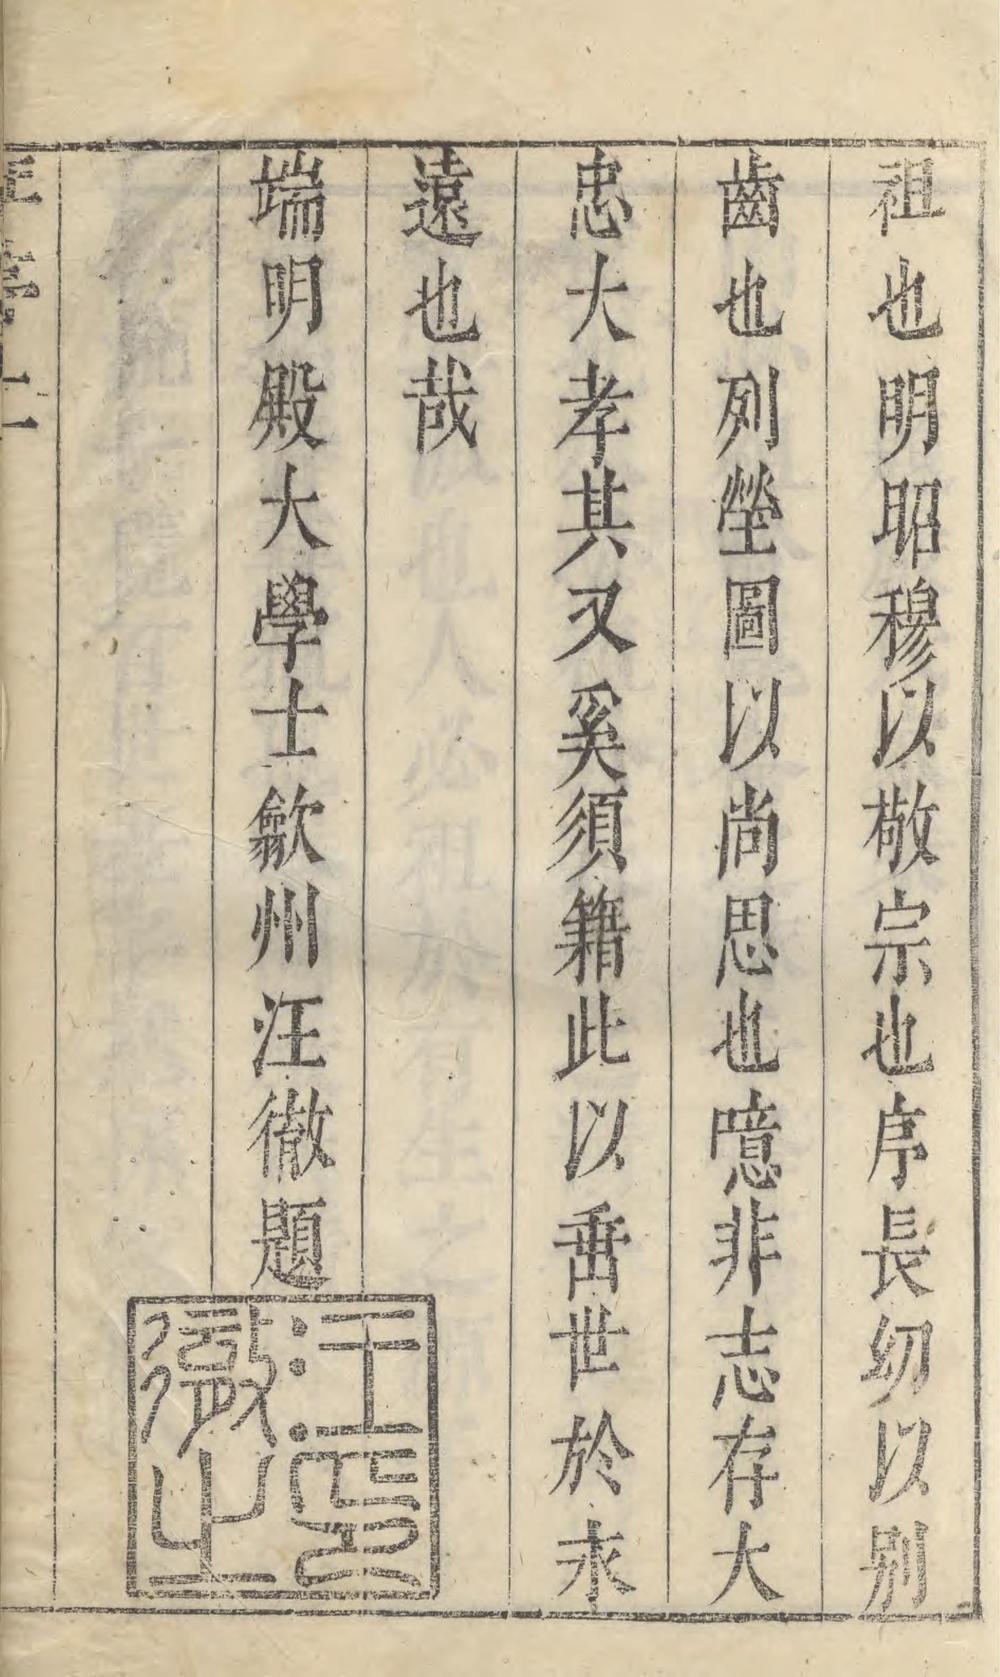 祖也明昭穆以敬宗也序長幼以别
齒也列塋圖以尚思也噫非志存大
忠大孝其又奚須籍此以垂世於永
遠也哉
端明殿大學士歙州汪徹題